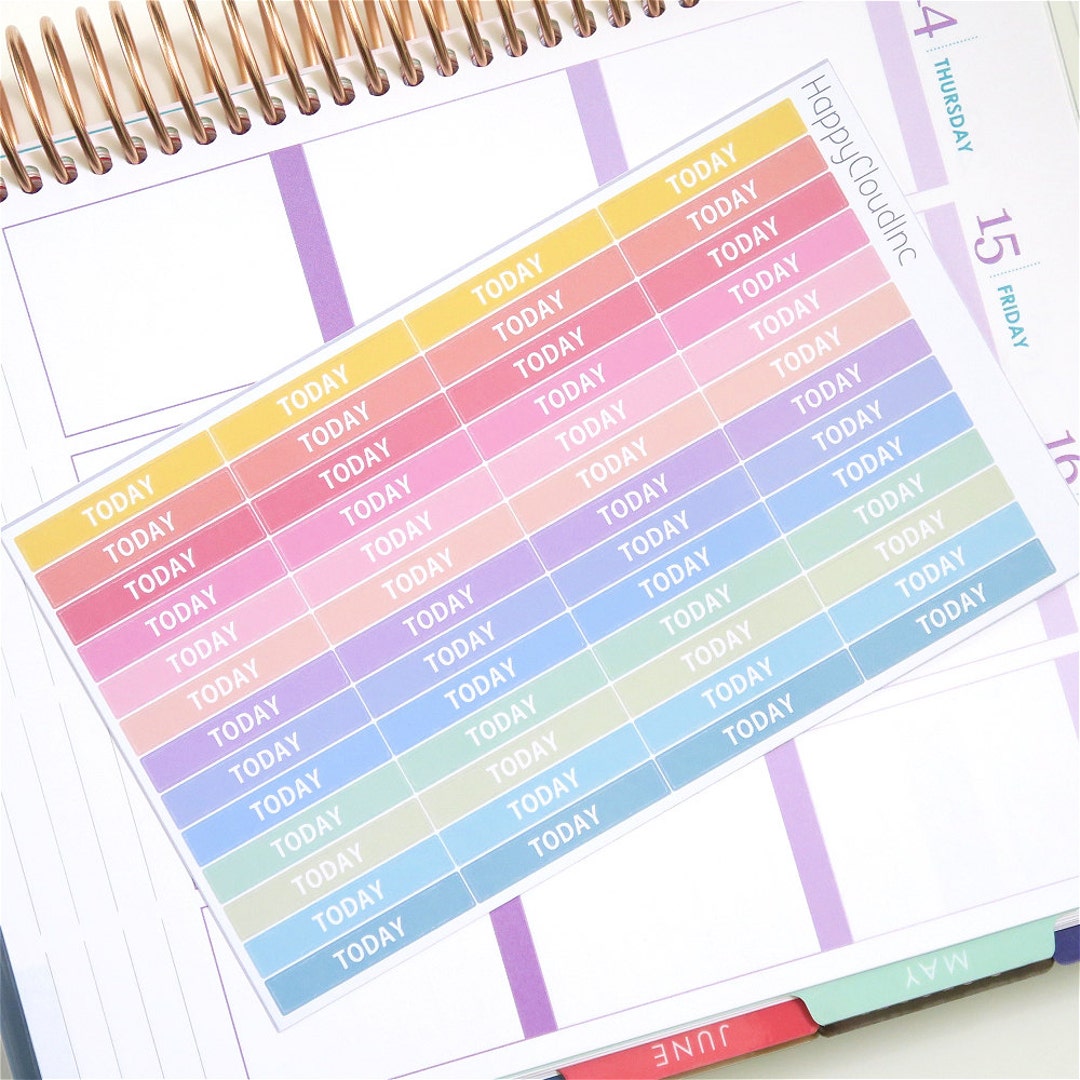 HappyCloudInc
TODAY TODAY TODAY TODAY
TODAY TODAY TODAY TODAY
TODAY TODAY TODAY TODAY
TODAY TODAY TODAY TODAY
TODAY TODAY TODAY TODAY
TODAY TODAY TODAY TODAY
TODAY TODAY TODAY TODAY
TODAY TODAY TODAY TODAY
TODAY TODAY TODAY TODAY
TODAY TODAY TODAY TODAY
TODAY TODAY TODAY TODAY
TODAY TODAY TODAY TODAY
TODAY TODAY TODAY TODAY
14
THURSDAY
15
FRIDAY
16
MAY
JUNE